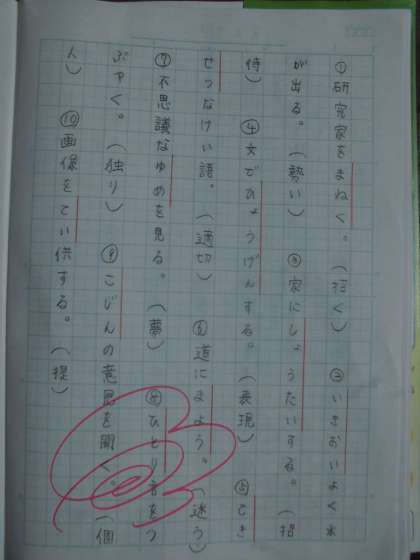 ①研究家をまねく。(招く) ②いきおいよく水
が出る。(勢い) ③家にしょうたいする。(招
待) ④文でひょうげんする。(表現) ⑤てき
せつなけい語。(適切) ⑥道にまよう。(迷う)
⑦不思議なゆめを見る。(夢) ⑧ひとり言をつ
ぶやく。(独り) ⑨こじんの意見を聞く。(個
人) ⑩画像をてい供する。(提)